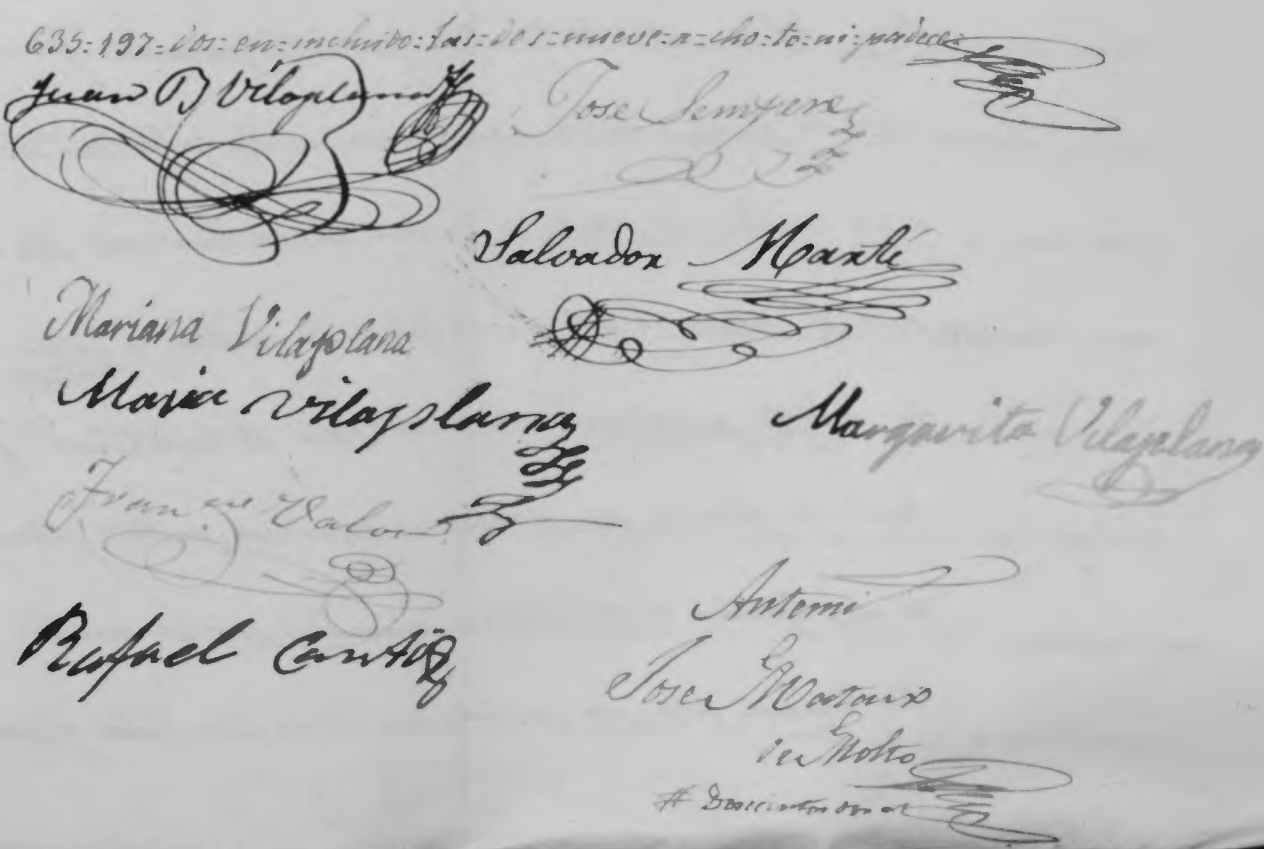 635=197=dos=en=incluido=las=des=nueve=a=cho=to=ni=padece=
Juan B Vilaplana
Jose Sempere
Salvador Martí
Mariana Vilaplana
Maria Vilaplana
Margarita Vilaplana
Fran.co Valor
Rafael Cantó
Antemi
Jose Mataix
de Molto
# Doscientos